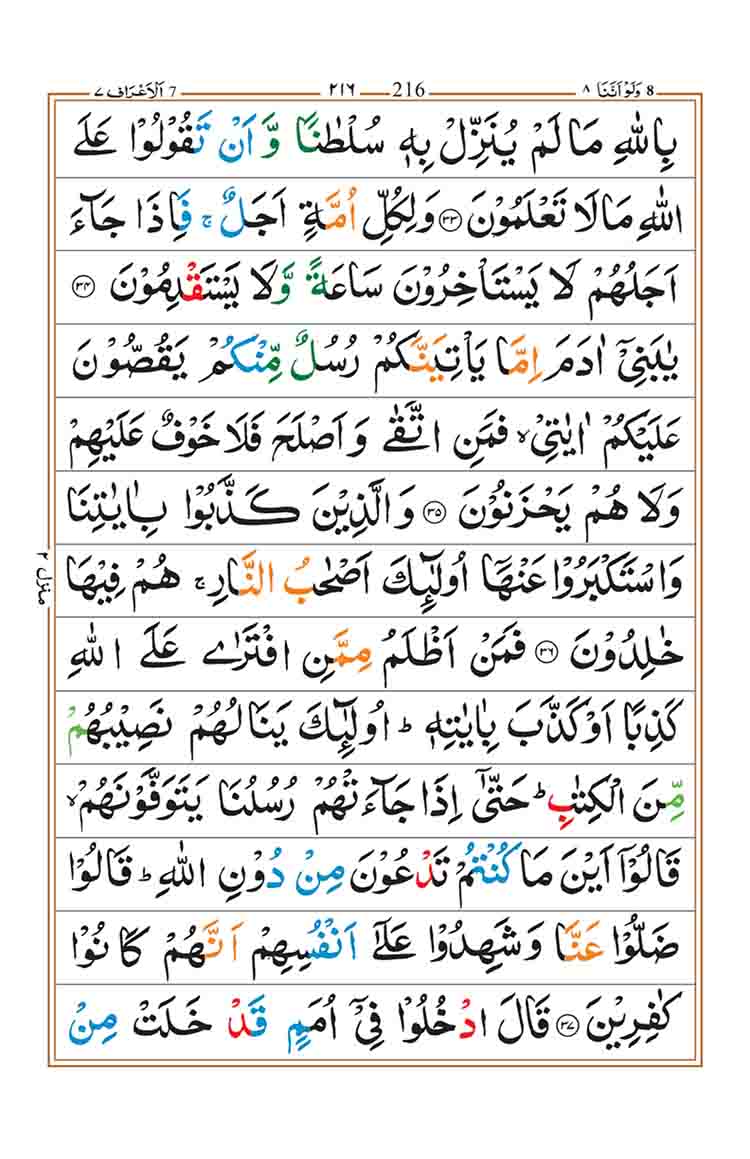 8 وَلَوْ اَنَّنَا ٨ 216 ٢١٦ 7 اَلْاَعْرَاف ٧
بِاللّٰهِ مَا لَمْ يُنَزِّلْ بِهٖ سُلْطٰنًا وَّ اَنْ تَقُوْلُوْا عَلَى
اللّٰهِ مَا لَا تَعْلَمُوْنَ ۝٣٣ وَلِكُلِّ اُمَّةٍ اَجَلٌ ۚ فَاِذَا جَآءَ
اَجَلُهُمْ لَا يَسْتَاْخِرُوْنَ سَاعَةً وَّلَا يَسْتَقْدِمُوْنَ ۝٣٤
يٰبَنِيْۤ اٰدَمَ اِمَّا يَاْتِيَنَّكُمْ رُسُلٌ مِّنْكُمْ يَقُصُّوْنَ
عَلَيْكُمْ اٰيٰتِيْ ۙ فَمَنِ اتَّقٰى وَاَصْلَحَ فَلَا خَوْفٌ عَلَيْهِمْ
وَلَا هُمْ يَحْزَنُوْنَ ۝٣٥ وَالَّذِيْنَ كَذَّبُوْا بِاٰيٰتِنَا
وَاسْتَكْبَرُوْا عَنْهَاۤ اُولٰٓئِكَ اَصْحٰبُ النَّارِ ۚ هُمْ فِيْهَا
خٰلِدُوْنَ ۝٣٦ فَمَنْ اَظْلَمُ مِمَّنِ افْتَرٰى عَلَى اللّٰهِ
كَذِبًا اَوْ كَذَّبَ بِاٰيٰتِهٖ ؕ اُولٰٓئِكَ يَنَالُهُمْ نَصِيْبُهُمْ
مِّنَ الْكِتٰبِ ؕ حَتّٰۤى اِذَا جَآءَتْهُمْ رُسُلُنَا يَتَوَفَّوْنَهُمْ ۙ
قَالُوْۤا اَيْنَ مَا كُنْتُمْ تَدْعُوْنَ مِنْ دُوْنِ اللّٰهِ ؕ قَالُوْا
ضَلُّوْا عَنَّا وَشَهِدُوْا عَلٰۤى اَنْفُسِهِمْ اَنَّهُمْ كَانُوْا
كٰفِرِيْنَ ۝٣٧ قَالَ ادْخُلُوْا فِيْۤ اُمَمٍ قَدْ خَلَتْ مِنْ
منزل ٢